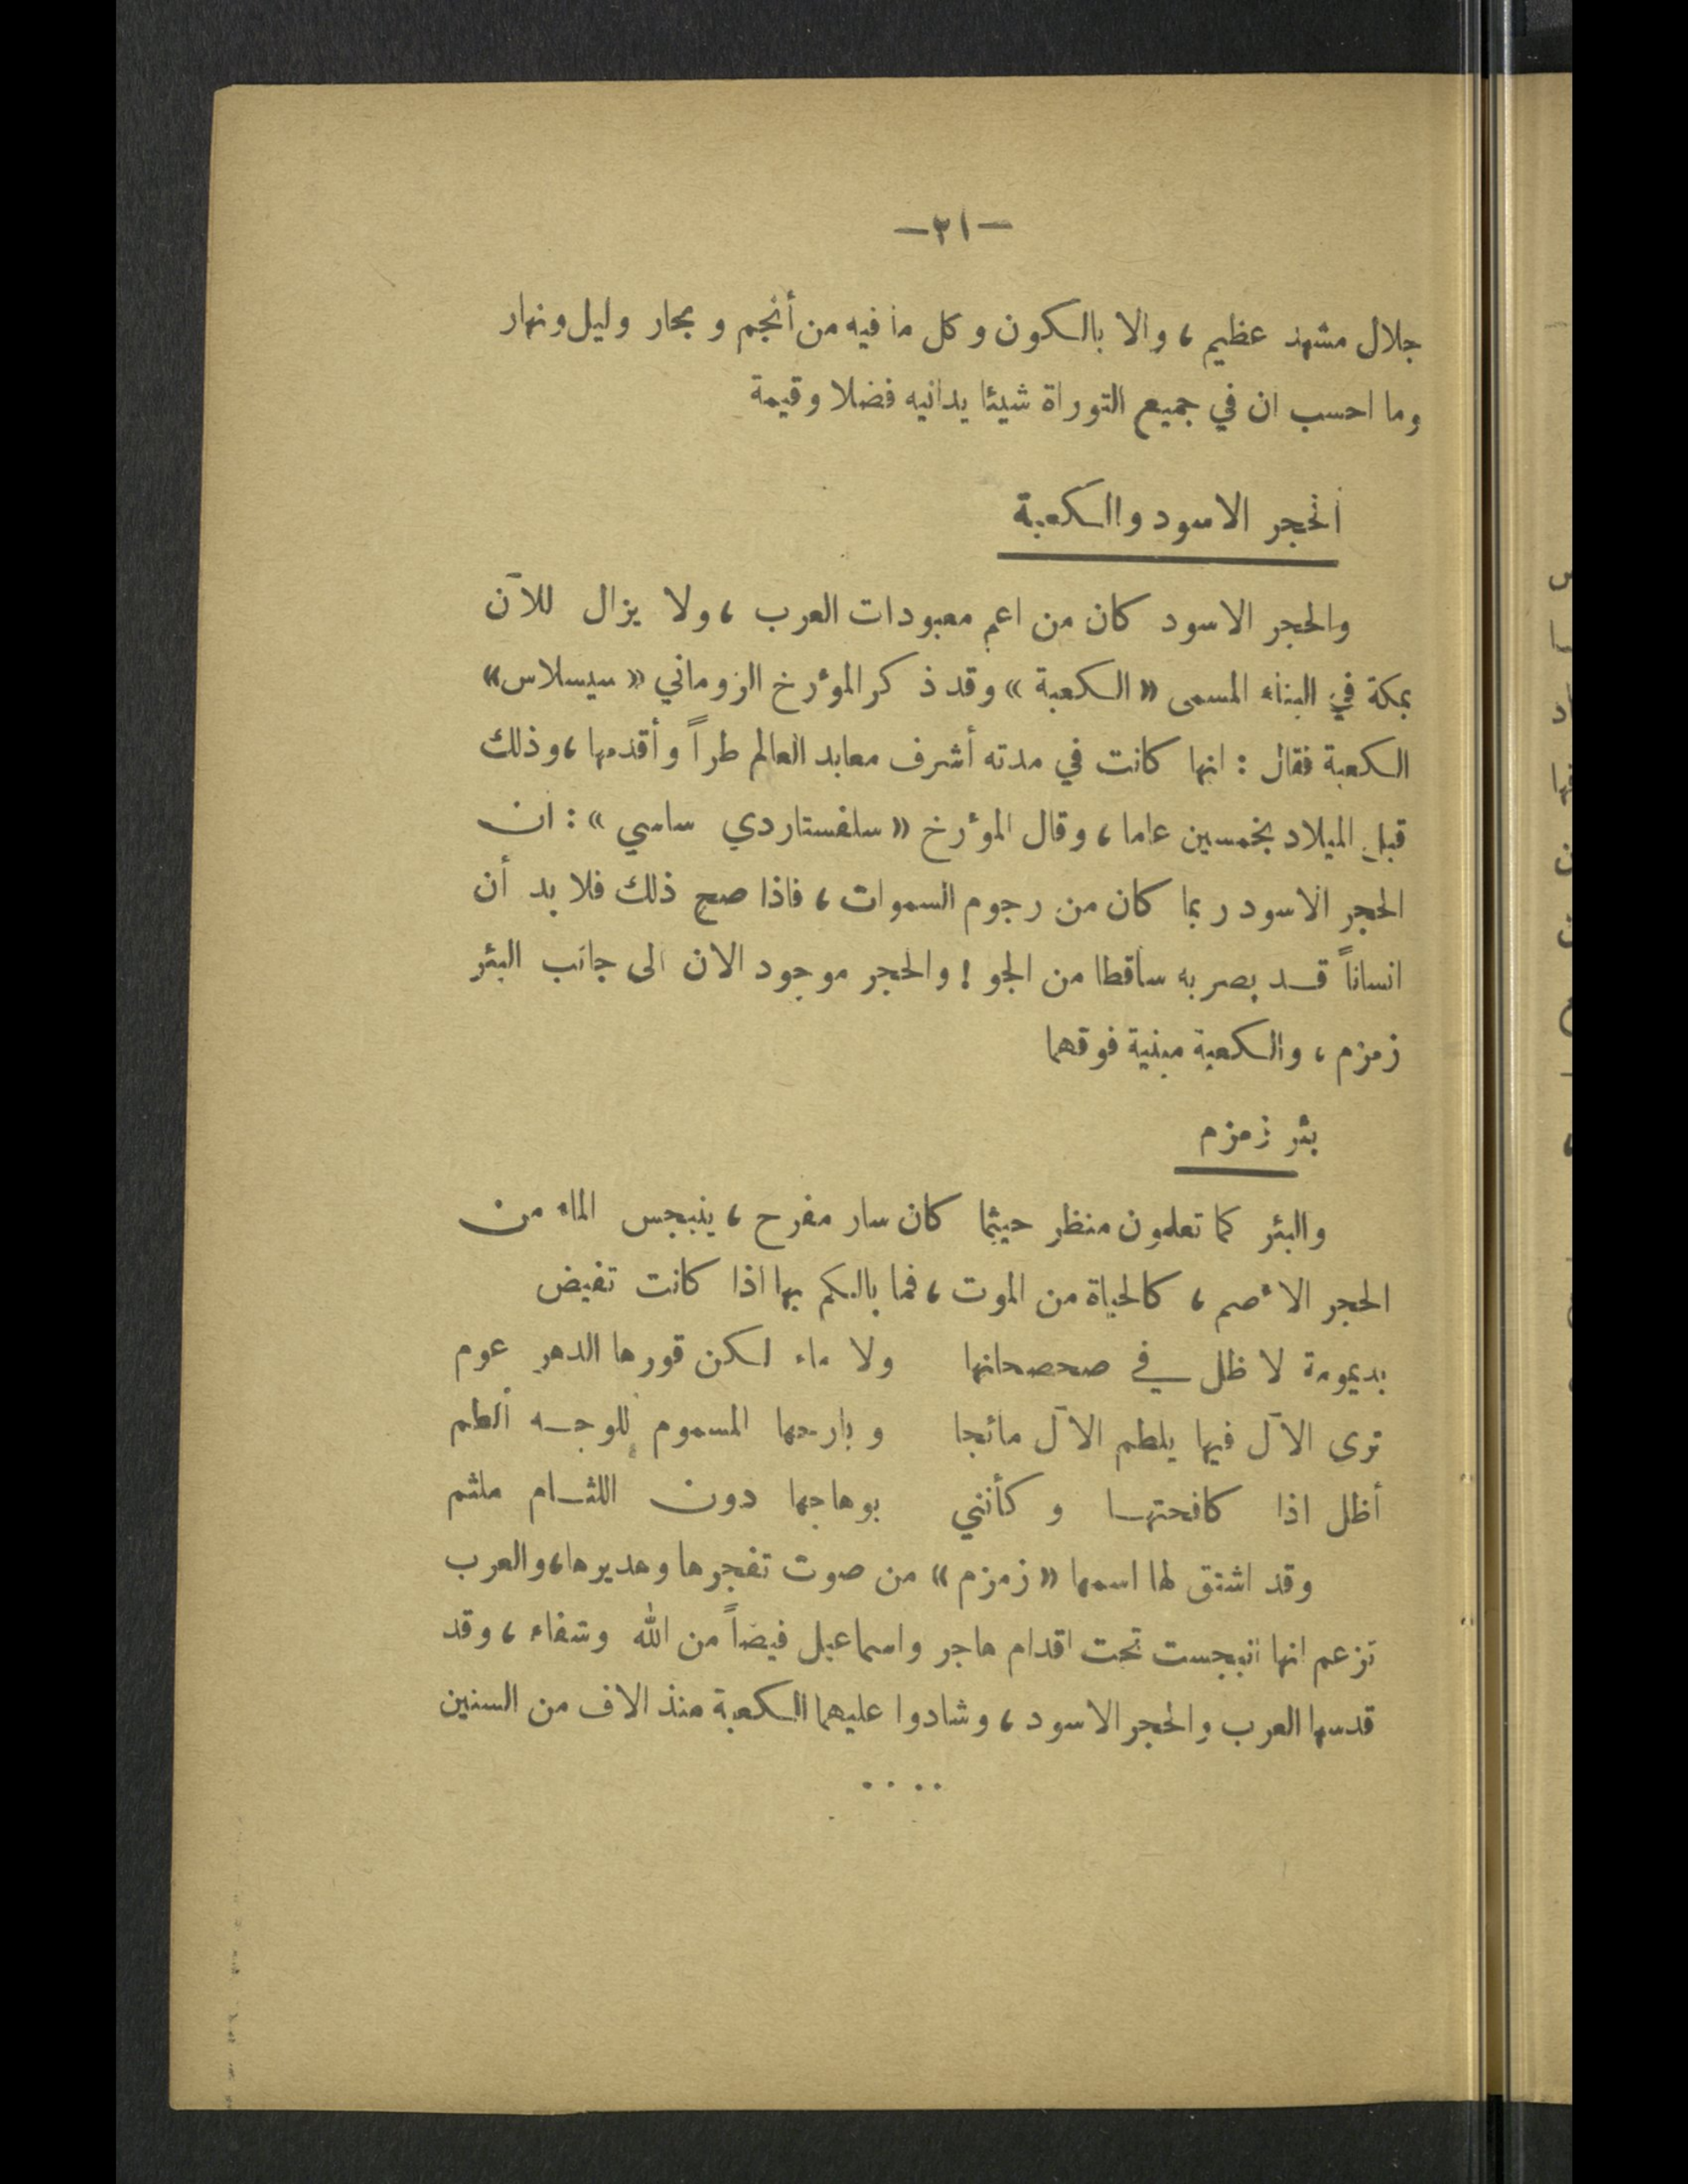 —٣١—
جلال مشهد عظيم ، والا بالكون وكل ما فيه من أنجم وبحار وليل ونهار
وما احسب ان في جميع التوراة شيئا يدانيه فضلا وقيمة
الحجر الاسود والكعبة
والحجر الاسود كان من اعم معبودات العرب ، ولا يزال للآن
بمكة في البناء المسمى « الكعبة » وقد ذكر المؤرخ الروماني « سيسلاس »
الكعبة فقال : انها كانت في مدته أشرف معابد العالم طراً وأقدمها ، وذلك
قبل الميلاد بخمسين عاما ، وقال المؤرخ « سلفستاردي ساسي » : ان
الحجر الاسود ربما كان من رجوم السموات ، فاذا صح ذلك فلا بد أن
انساناً قد بصر به ساقطا من الجو ! والحجر موجود الان الى جانب البئر
زمزم ، والكعبة مبنية فوقهما
بئر زمزم
والبئر كما تعلمون منظر حيثما كان سار مفرح ، ينبجس الماء من
الحجر الأصم ، كالحياة من الموت ، فما بالكم بها اذا كانت تفيض
بديمومة لا ظل في صحصحانها ولا ماء لكن قورها الدهر عوم
ترى الآل فيها يلطم الآل مائجا وبارحها المسموم للوجه ألطم
أظل اذا كافحتها وكأنني بوهاجها دون اللثام ملثم
وقد اشتق لها اسمها « زمزم » من صوت تفجرها وهديرها ، والعرب
تزعم انها انبجست تحت اقدام هاجر واسماعيل فيضاً من الله وشفاء ، وقد
قدسها العرب والحجر الاسود ، وشادوا عليهما الكعبة منذ الاف من السنين
. . . .